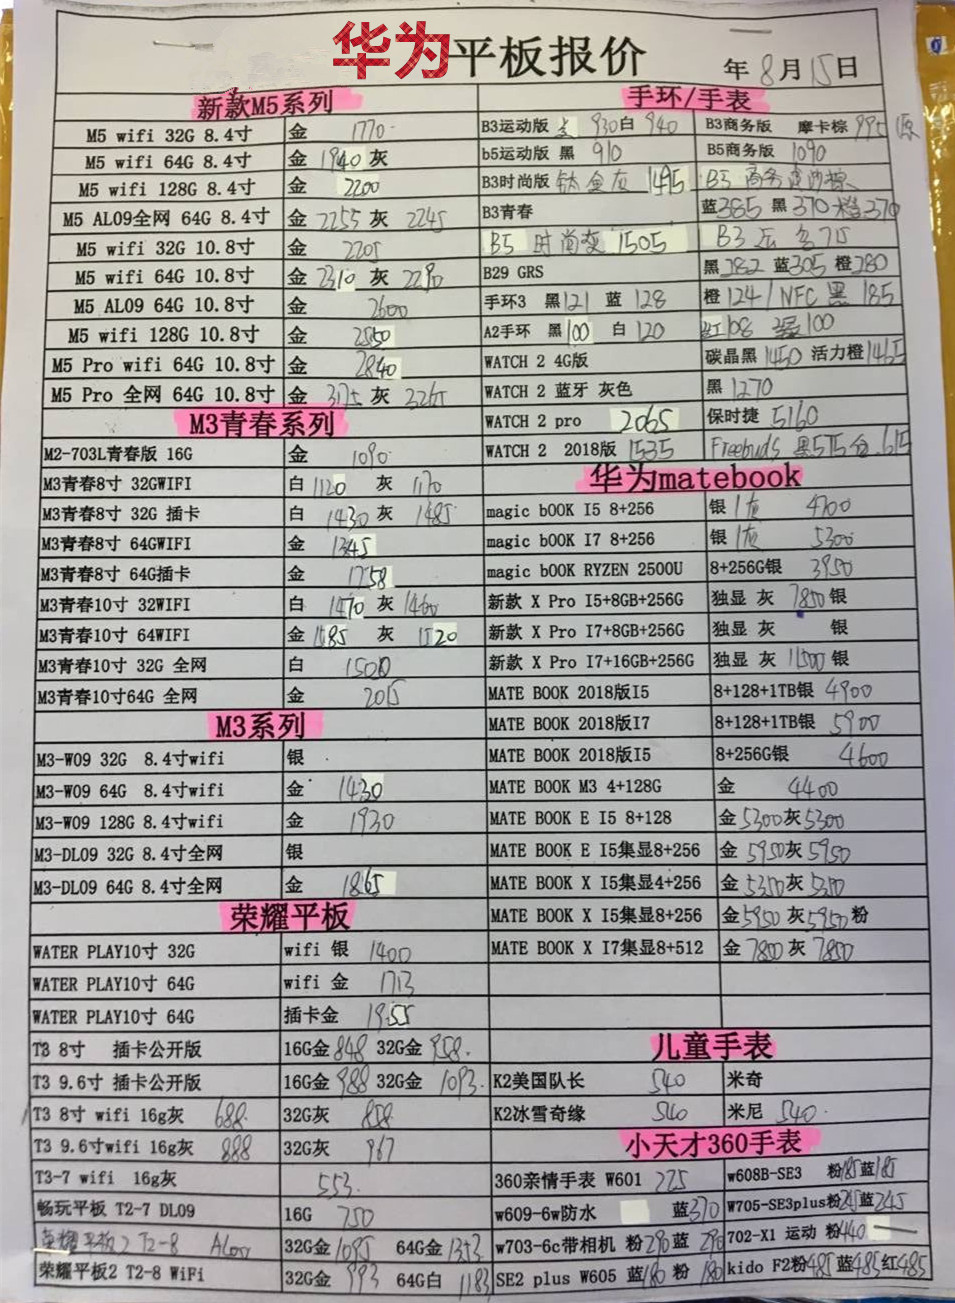 华为平板报价
年 8月15日
新款M5系列
M5 wifi 32G 8.4寸 金 1770
M5 wifi 64G 8.4寸 金 1940 灰
M5 wifi 128G 8.4寸 金 2200
M5 AL09全网 64G 8.4寸 金 2255 灰 2245
M5 wifi 32G 10.8寸 金 2205
M5 wifi 64G 10.8寸 金 2310 灰 2290
M5 AL09 64G 10.8寸 金 2600
M5 wifi 128G 10.8寸 金 2550
M5 Pro wifi 64G 10.8寸 金 2840
M5 Pro 全网 64G 10.8寸 金 3175 灰 3265
M3青春系列
M2-703L青春版 16G 金 1090
M3青春8寸 32GWIFI 白 1120 灰 1170
M3青春8寸 32G 插卡 白 1430 灰 1485
M3青春8寸 64GWIFI 金 1345
M3青春8寸 64G插卡 金 1758
M3青春10寸 32WIFI 白 1470 灰 1460
M3青春10寸 64WIFI 金 1685 灰 1520
M3青春10寸 32G 全网 白 1500
M3青春10寸64G 全网 金 2015
M3系列
M3-W09 32G 8.4寸wifi 银
M3-W09 64G 8.4寸wifi 金 1430
M3-W09 128G 8.4寸wifi 金 1930
M3-DL09 32G 8.4寸全网 银
M3-DL09 64G 8.4寸全网 金 1865
荣耀平板
WATER PLAY10寸 32G wifi 银 1400
WATER PLAY10寸 64G wifi 金 1713
WATER PLAY10寸 64G 插卡金 1955
T3 8寸 插卡公开版 16G金 848 32G金 958
T3 9.6寸 插卡公开版 16G金 988 32G金 1093
T3 8寸 wifi 16g灰 688 32G灰 858
T3 9.6寸wifi 16g灰 888 32G灰 967
T3-7 wifi 16g灰 553
畅玩平板 T2-7 DL09 16G 750
荣耀平板2 T2-8 32G金 1095 64G金 1353
荣耀平板2 T2-8 WiFi 32G金 993 64G白 1183
手环/手表
B3运动版 930白 940 B3商务版 摩卡棕 995
b5运动版 黑 910 B5商务版 1090
B3时尚版 钛金灰 1495 B5 商务
B3青春 蓝385 黑370 橙370
B5 时尚 1505 B3
B29 GRS 黑282 蓝305 橙280
手环3 黑121 蓝 128 橙 124 / NFC 黑 185
A2手环 黑100 白 120 红108 100
WATCH 2 4G版 碳晶黑 1450 活力橙1465
WATCH 2 蓝牙 灰色 黑 1270
WATCH 2 pro 2065 保时捷 5160
WATCH 2 2018版 1535 Freebuds 黑575 白 615
华为matebook
magic bOOK I5 8+256 银 灰 4700
magic bOOK I7 8+256 银 灰 5300
magic bOOK RYZEN 2500U 8+256G银 3950
新款 X Pro I5+8GB+256G 独显 灰 7850 银
新款 X Pro I7+8GB+256G 独显 灰 银
新款 X Pro I7+16GB+256G 独显 灰 11500 银
MATE BOOK 2018版I5 8+128+1TB银 4900
MATE BOOK 2018版I7 8+128+1TB银 5900
MATE BOOK 2018版I5 8+256G银 4600
MATE BOOK M3 4+128G 金 4400
MATE BOOK E I5 8+128 金 5300灰5300
MATE BOOK E I5集显8+256 金 5950灰5950
MATE BOOK X I5集显4+256 金 5350灰5350
MATE BOOK X I5集显8+256 金5950 灰5950粉
MATE BOOK X I7集显8+512 金 7800灰 7800
儿童手表
K2美国队长 540 米奇
K2冰雪奇缘 540 米尼 540
小天才360手表
360亲情手表 W601 225 w608B-SE3 粉185蓝185
w609-6w防水 蓝370 W705-SE3plus粉245蓝245
w703-6c带相机 粉290蓝 290 702-X1 运动 粉440
SE2 plus W605 蓝180 粉 180 kido F2粉485蓝485红485